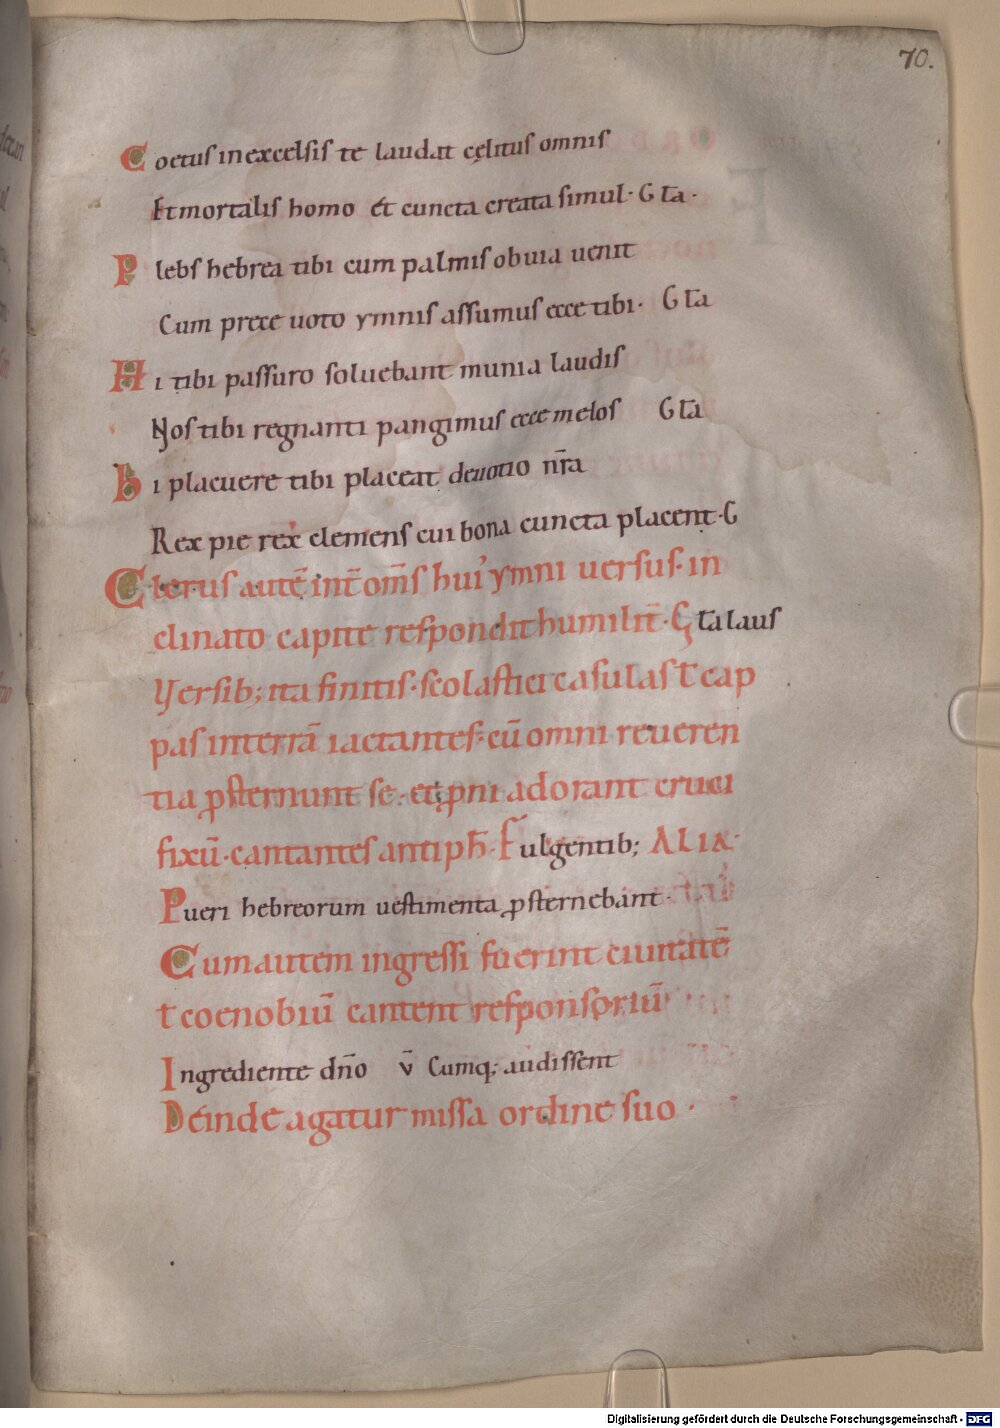 70.
Coetus in excelsis te laudat cęlitus omnis
Et mortalis homo et cuncta creata simul· G l̄a·
Plebs hebrea tibi cum palmis obuia uenit
Cum prece uoto ymnis assumus ecce tibi· G l̄a
Hi tibi passuro soluebant munia laudis
Nos tibi regnanti pangimus ecce melos G l̄a
hi placuere tibi placeat deuotio nr̄a
Rex pie rex clemens cui bona cuncta placent· G
Clerus autē int̄ om̄s hui' ymni uersus· in
clinato capite respondit humilit̄· G l̄a laus
Versib; ita finitis· scolastici casulas t̄ cap
pas in terrā iactantes· cū omni reueren
tia ꝓsternunt se· et ꝓni adorant cruci
fixū· cantantes antiph̄· Fulgentib; ALIA·
Pueri hebreorum uestimenta ꝓsternebant·
Cum autem ingressi fuerint ciuitatē
t̄ coenobiū cantent responsoriū
Ingrediente dn̄o v̄ Cumq; audissent
Deinde agatur missa ordine suo·
Digitalisierung gefördert durch die Deutsche Forschungsgemeinschaft - DFG